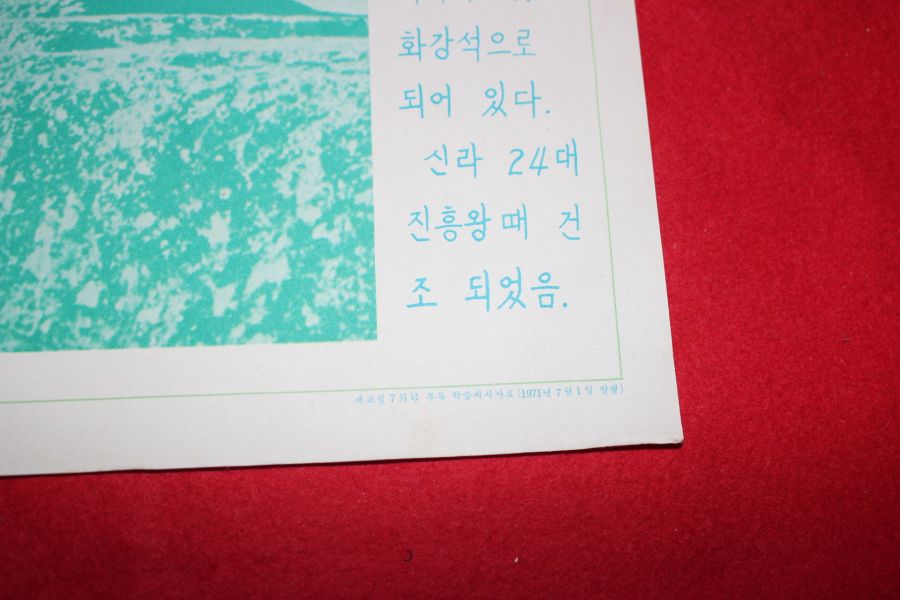 화강석으로
되어 있다.
신라 24대
진흥왕때 건
조 되었음.
새교실 7月号 부록 학습게시자료 (1971년 7월 1일 발행)